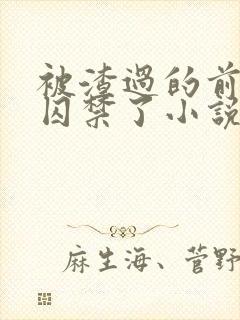 被渣過的前
囚禁了小說
麻生海、菅野